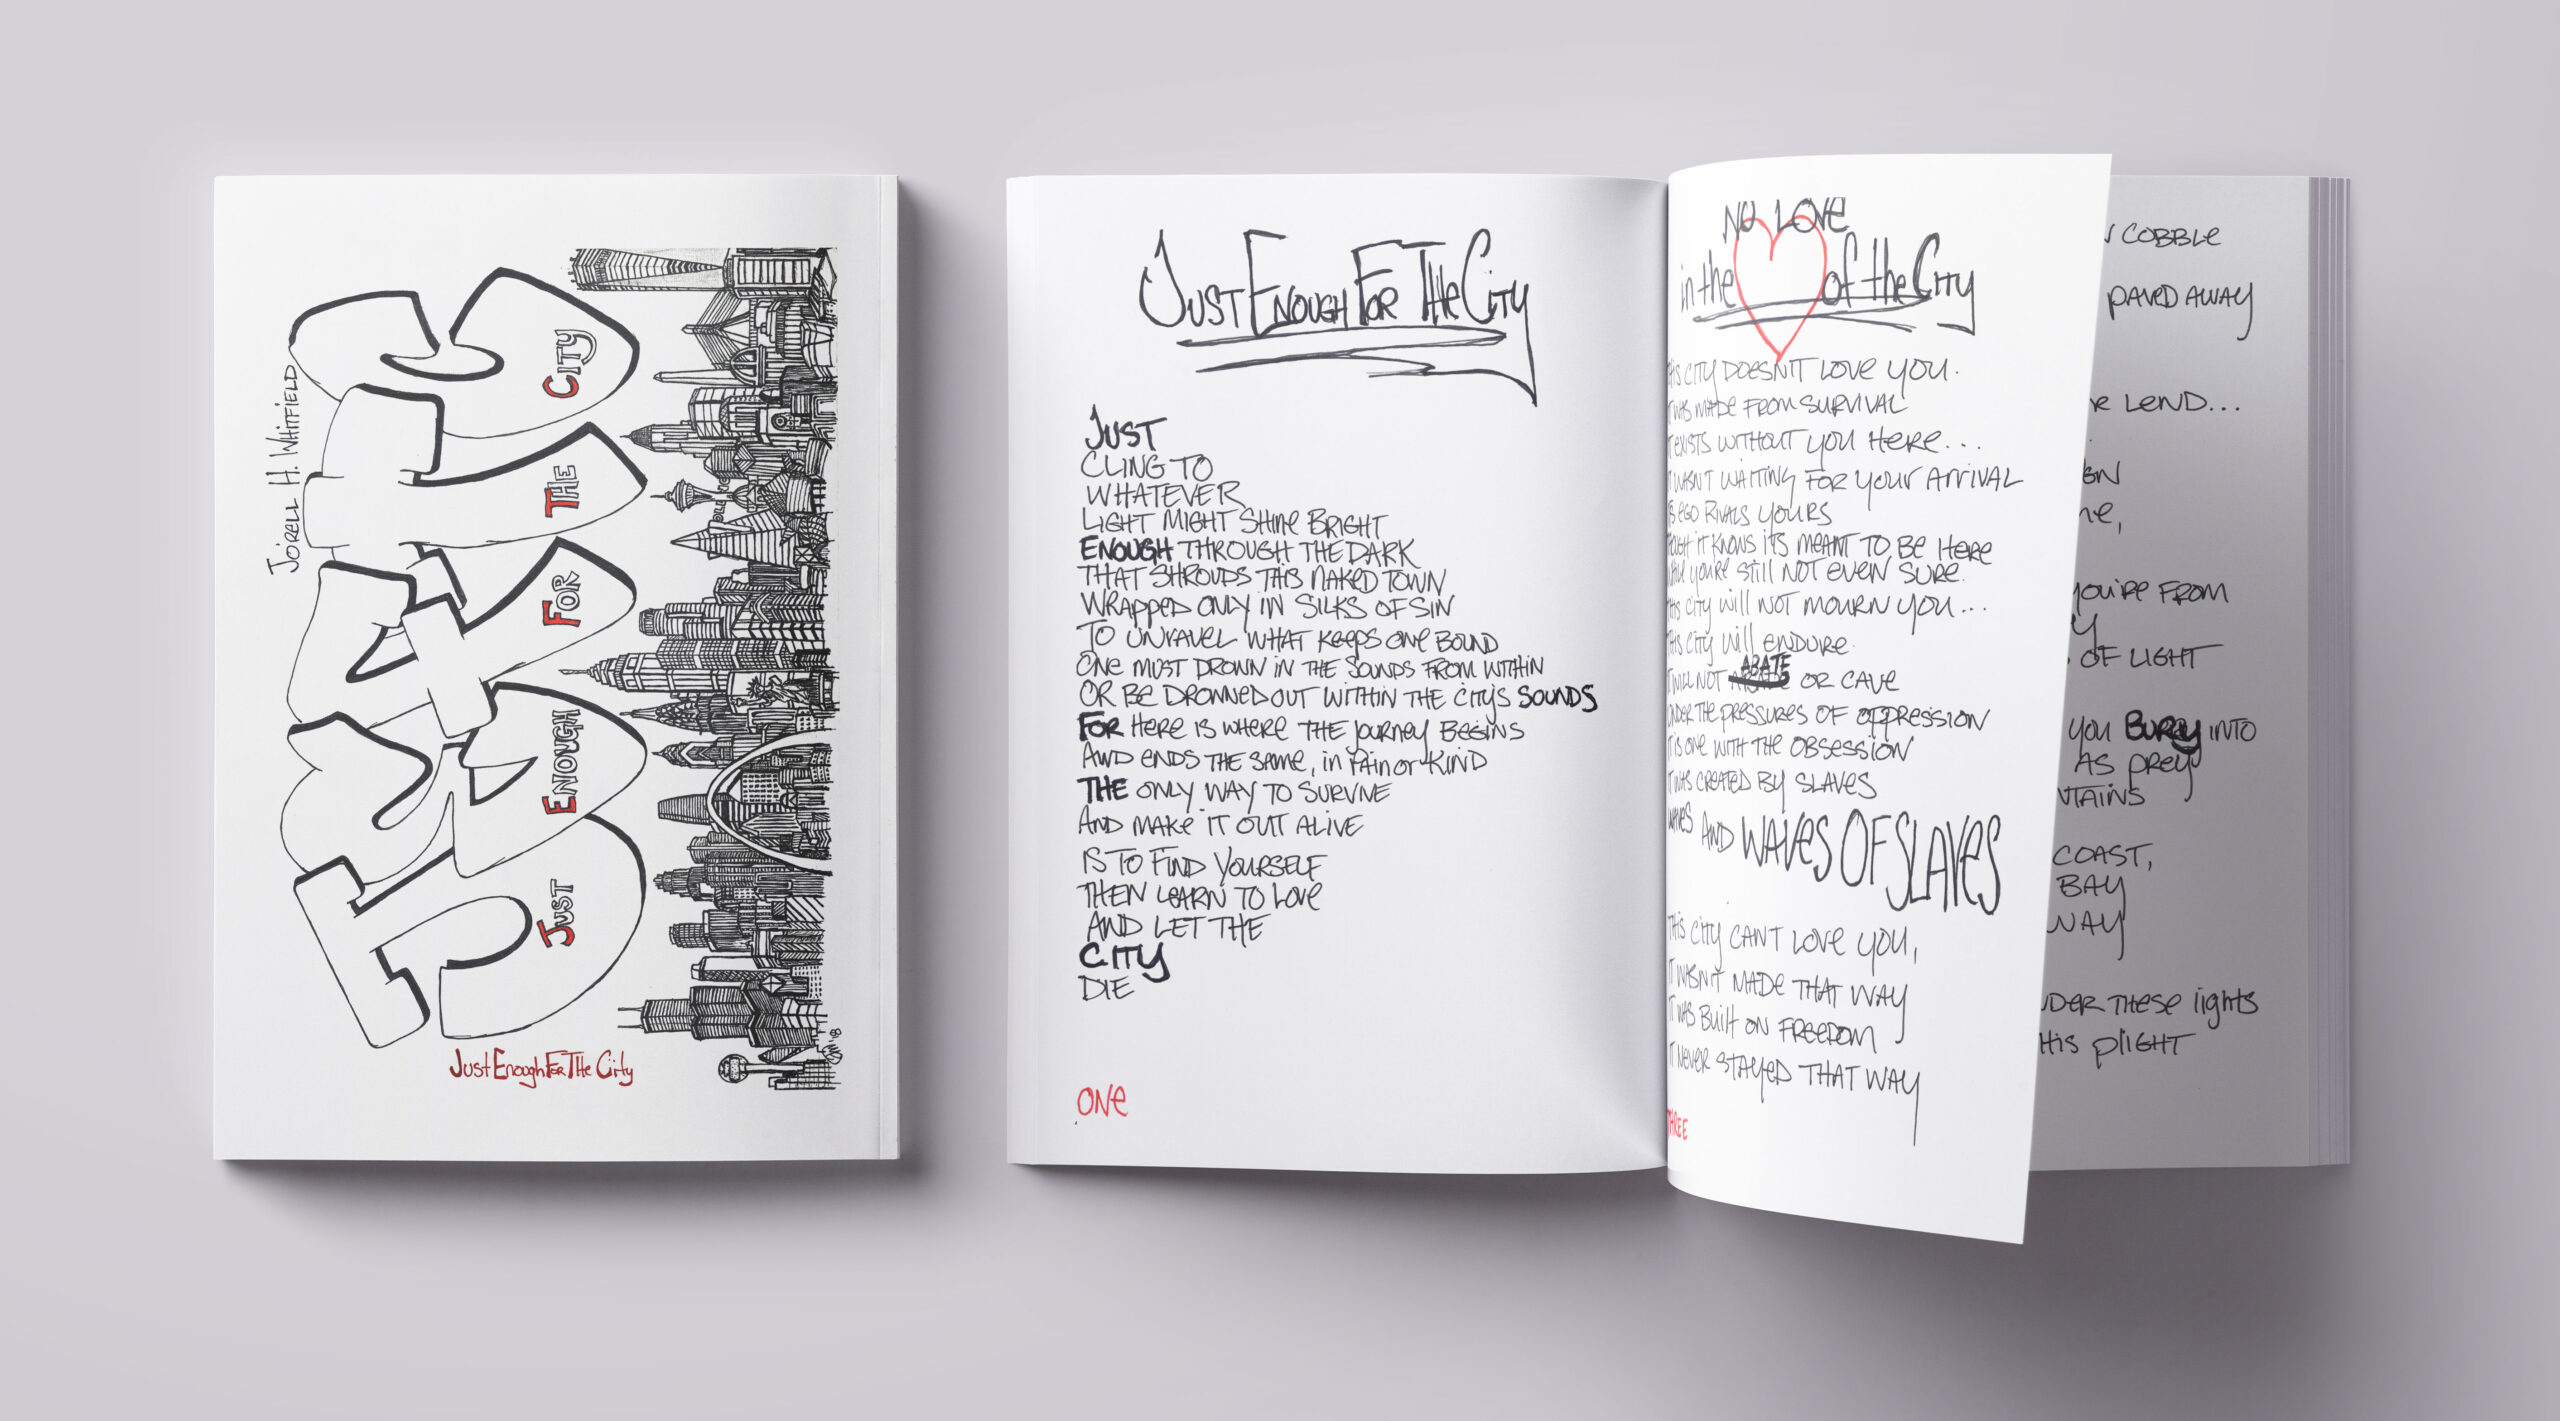 JO'RELL H. WHITFIELD
JUST
ENOUGH
FOR
THE
CITY
Just Enough For The City
'18
Just Enough For The City
JUST
CLING TO
WHATEVER
LIGHT MIGHT SHINE BRIGHT
ENOUGH THROUGH THE DARK
THAT SHROUDS THIS NAKED TOWN
WRAPPED ONLY IN SILKS OF SIN
TO UNRAVEL WHAT KEEPS ONE BOUND
ONE MUST DROWN IN THE SOUNDS FROM WITHIN
OR BE DROWNED OUT WITHIN THE CITY'S SOUNDS
FOR HERE IS WHERE THE JOURNEY BEGINS
AND ENDS THE SAME, IN PAIN OR KIND
THE ONLY WAY TO SURVIVE
AND MAKE IT OUT ALIVE
IS TO FIND YOURSELF
THEN LEARN TO LOVE
AND LET THE
CITY
DIE
ONE
NO LOVE
in the of the City
THIS CITY DOESN'T LOVE YOU.
IT WAS MADE FROM SURVIVAL
IT EXISTS WITHOUT YOU HERE...
IT WASN'T WAITING FOR YOUR ARRIVAL
ITS EGO RIVALS YOURS
THOUGH IT KNOWS ITS MEANT TO BE HERE
WHILE YOU'RE STILL NOT EVEN SURE.
THIS CITY WILL NOT MOURN YOU...
THIS CITY WILL ENDURE.
IT WILL NOT ABATE OR CAVE
UNDER THE PRESSURES OF OPPRESSION
IT IS ONE WITH THE OBSESSION
IT WAS CREATED BY SLAVES
WAVES AND WAVES OF SLAVES
THIS CITY CAN'T LOVE YOU,
IT WASN'T MADE THAT WAY
IT WAS BUILT ON FREEDOM
IT NEVER STAYED THAT WAY
THREE
COBBLE
PAVED AWAY
LEND...
YOU'RE FROM
OF LIGHT
YOU BURY INTO
AS PREY
COAST,
BAY
WAY
THESE lights
PLIGHT